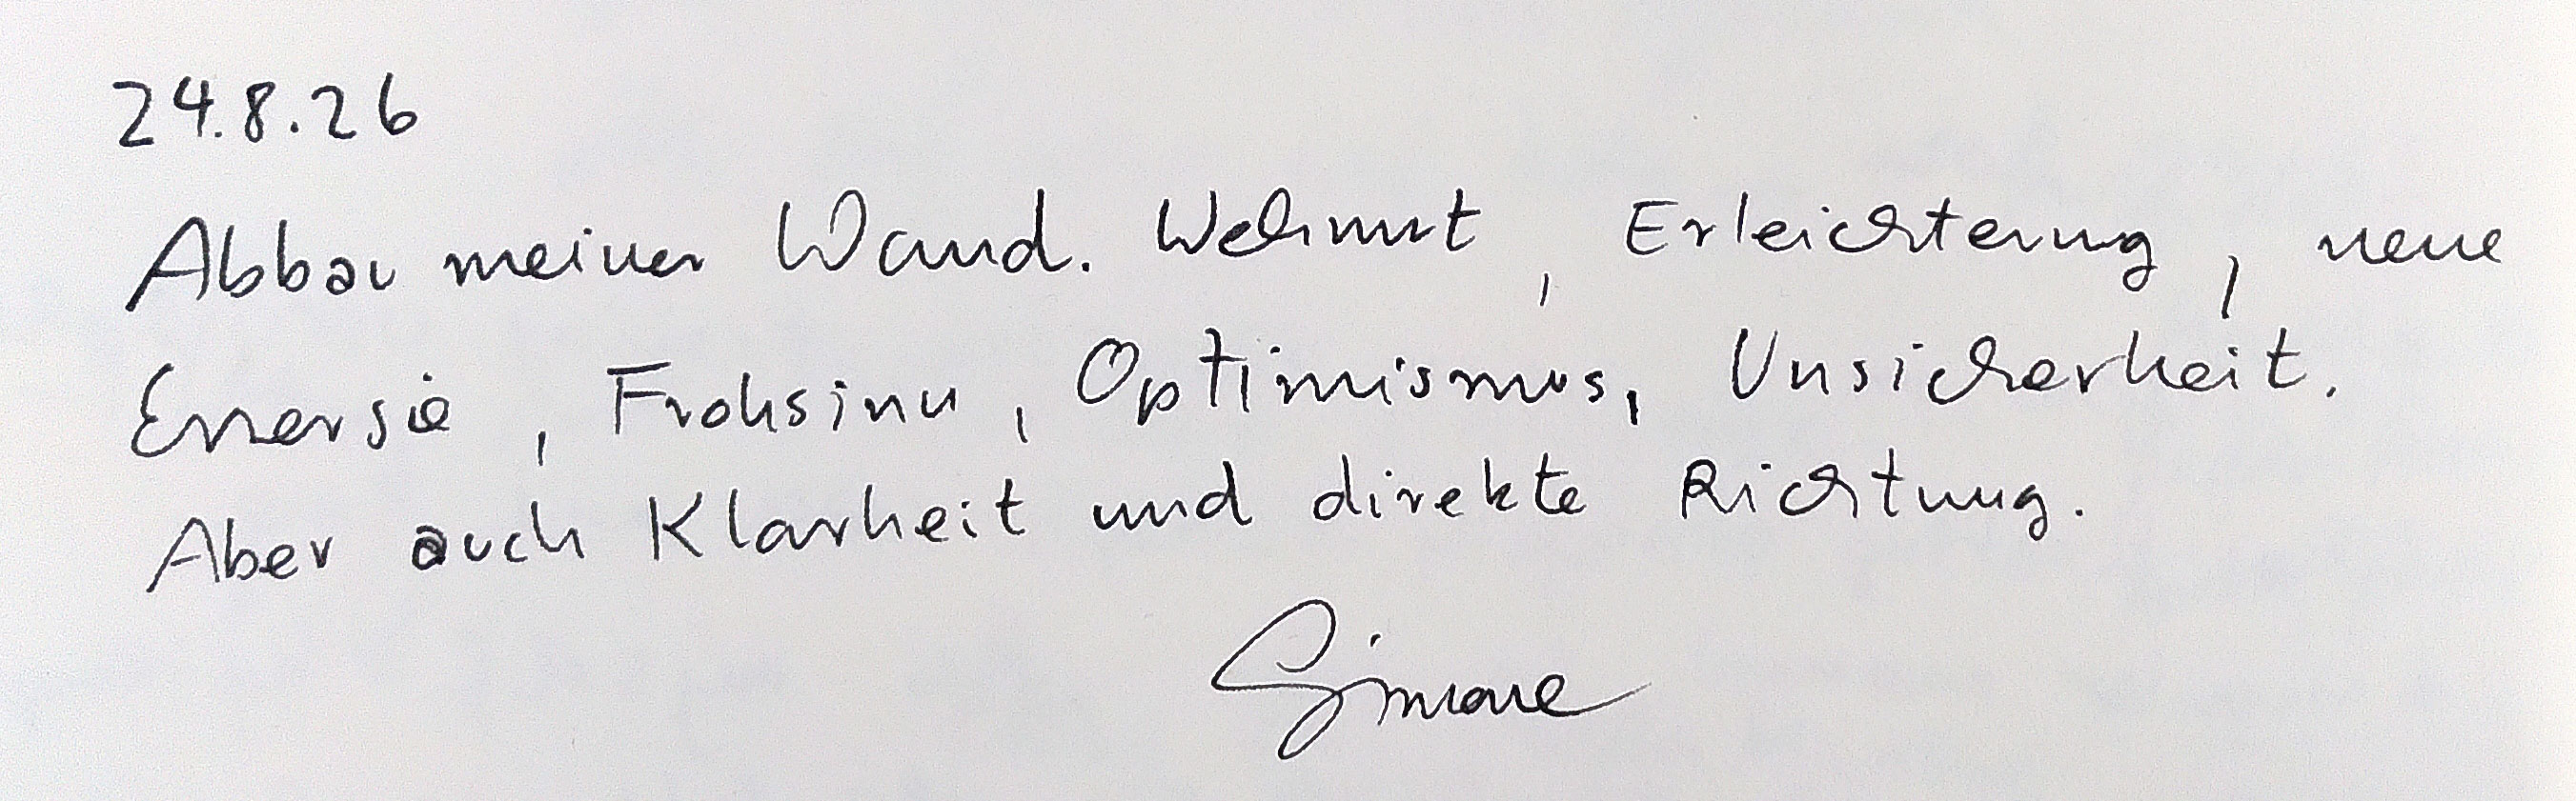 24.8.26
Abbau meiner Wand. Wehmut, Erleichterung, neue
Energie, Frohsinn, Optimismus, Unsicherheit.
Aber auch Klarheit und direkte Richtung.
Simone